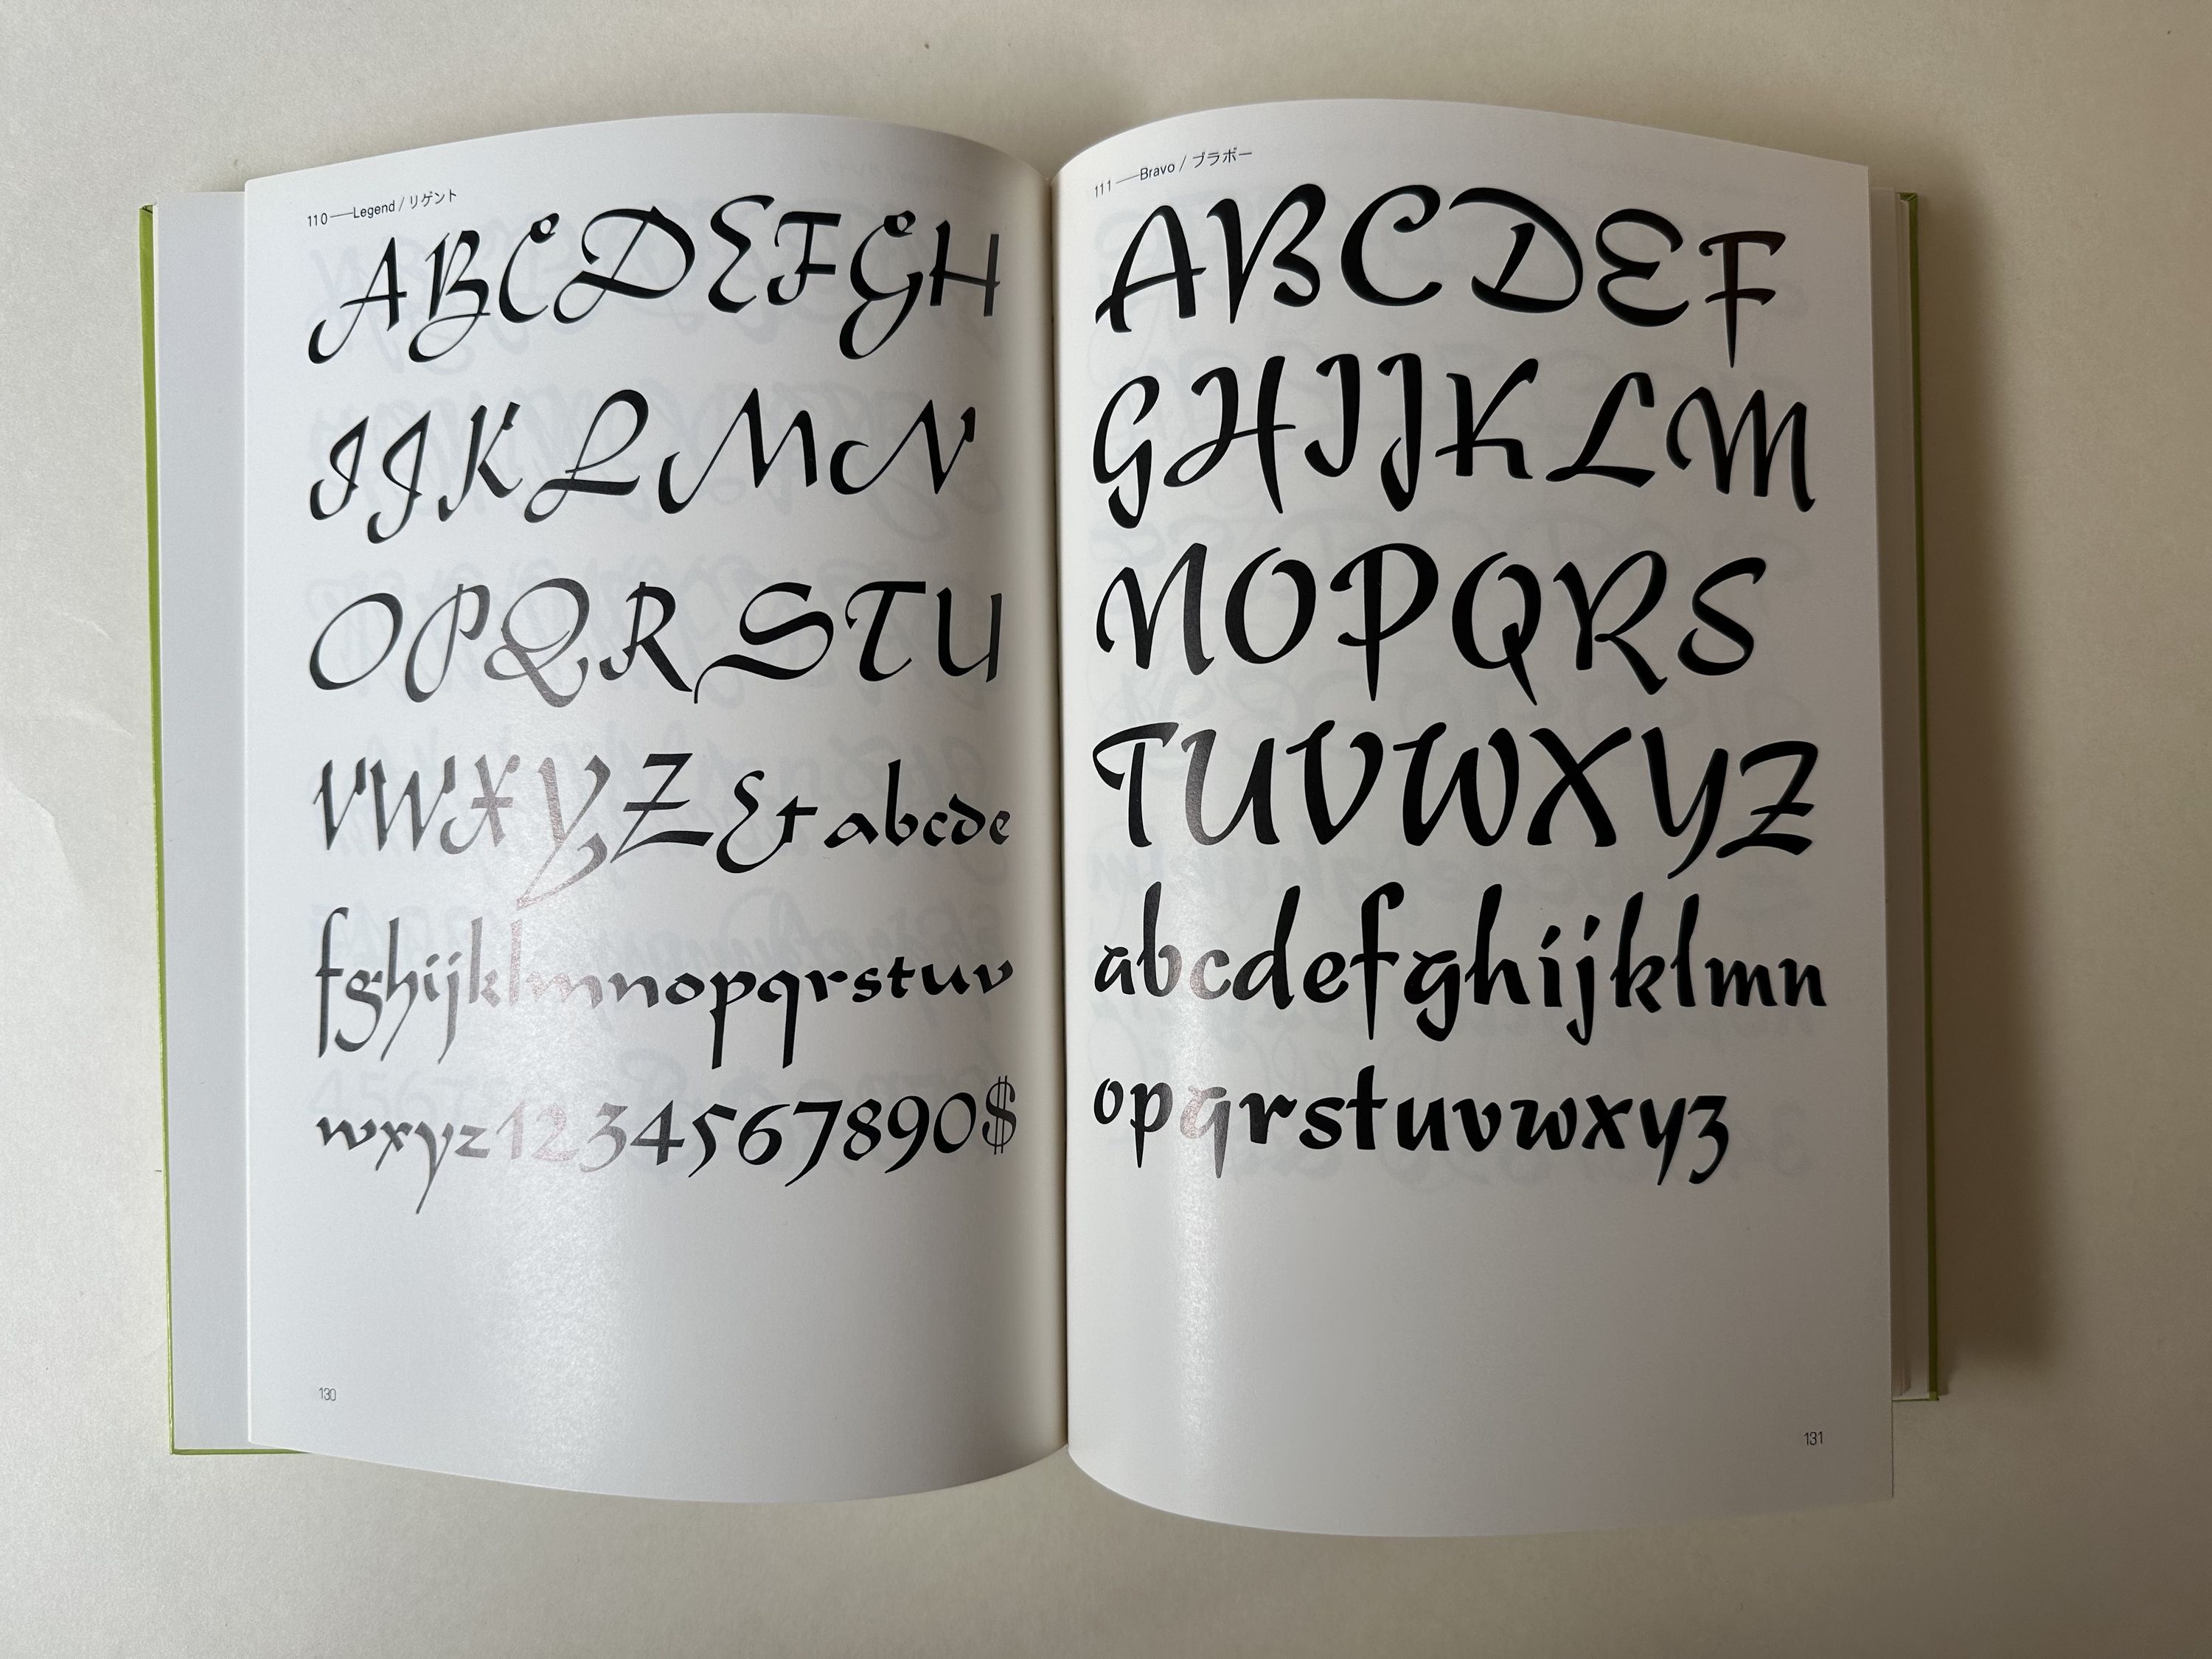 110——Legend / リゲント
ABCDEFGH
IJKLMN
OPQRSTU
VWXYZ&abcde
fghijklmnopqrstuv
wxyz1234567890$
130
111——Bravo / ブラボー
ABCDEF
GHIJKLM
NOPQRS
TUVWXYZ
abcdefghijklmn
opqrstuvwxyz
131